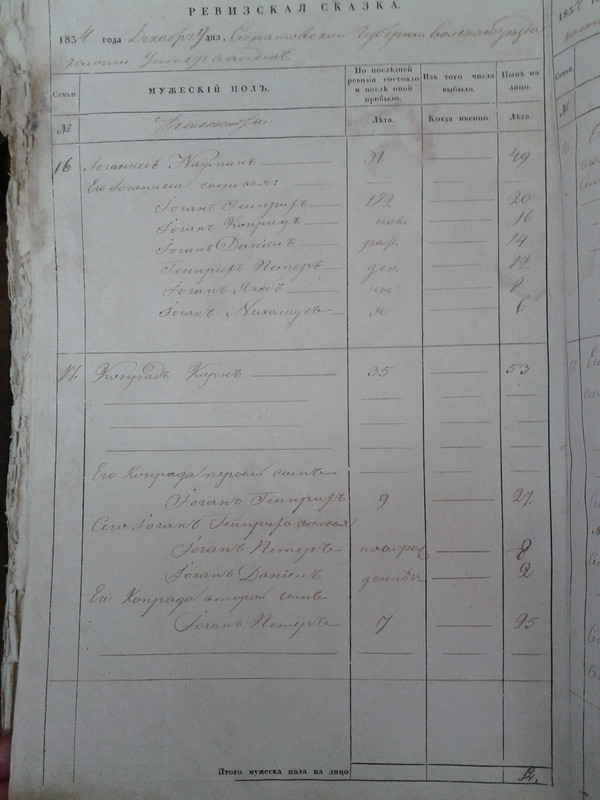 РЕВИЗСКАЯ СКАЗКА.
1834 года Декабря дня, Саратовской Губернии
колонии Унтервальденъ
Семьи. МУЖЕСКІЙ ПОЛЪ. По послѣдней ревизіи состояло и послѣ оной прибыло. Изъ того числа выбыло. Нынѣ на лицо.
№ Лѣта. Когда именно. Лѣта.
16 Іоганнесъ 31 49
Его Іоганнеса сыновья:
Іоганъ Генрихъ 1 1/2 20
Іоганъ Конрадъ ново 16
Іоганъ Даніелъ рож 14
Генрихъ Петеръ ден 12
Іоганъ Якобъ ны 8
Іоганъ Николаусъ я 6
17. Конрадъ Кернъ 35 53
Его Конрада первой сынъ
Іоганъ Генрихъ 9 27
Сего Іоганъ Генриха сыновья
Іоганъ Петеръ новорож 8
Іоганъ Даніелъ денные 2
Его Конрада второй сынъ
Іоганъ Петеръ 7 25
Итого мужеска пола на лицо 12.